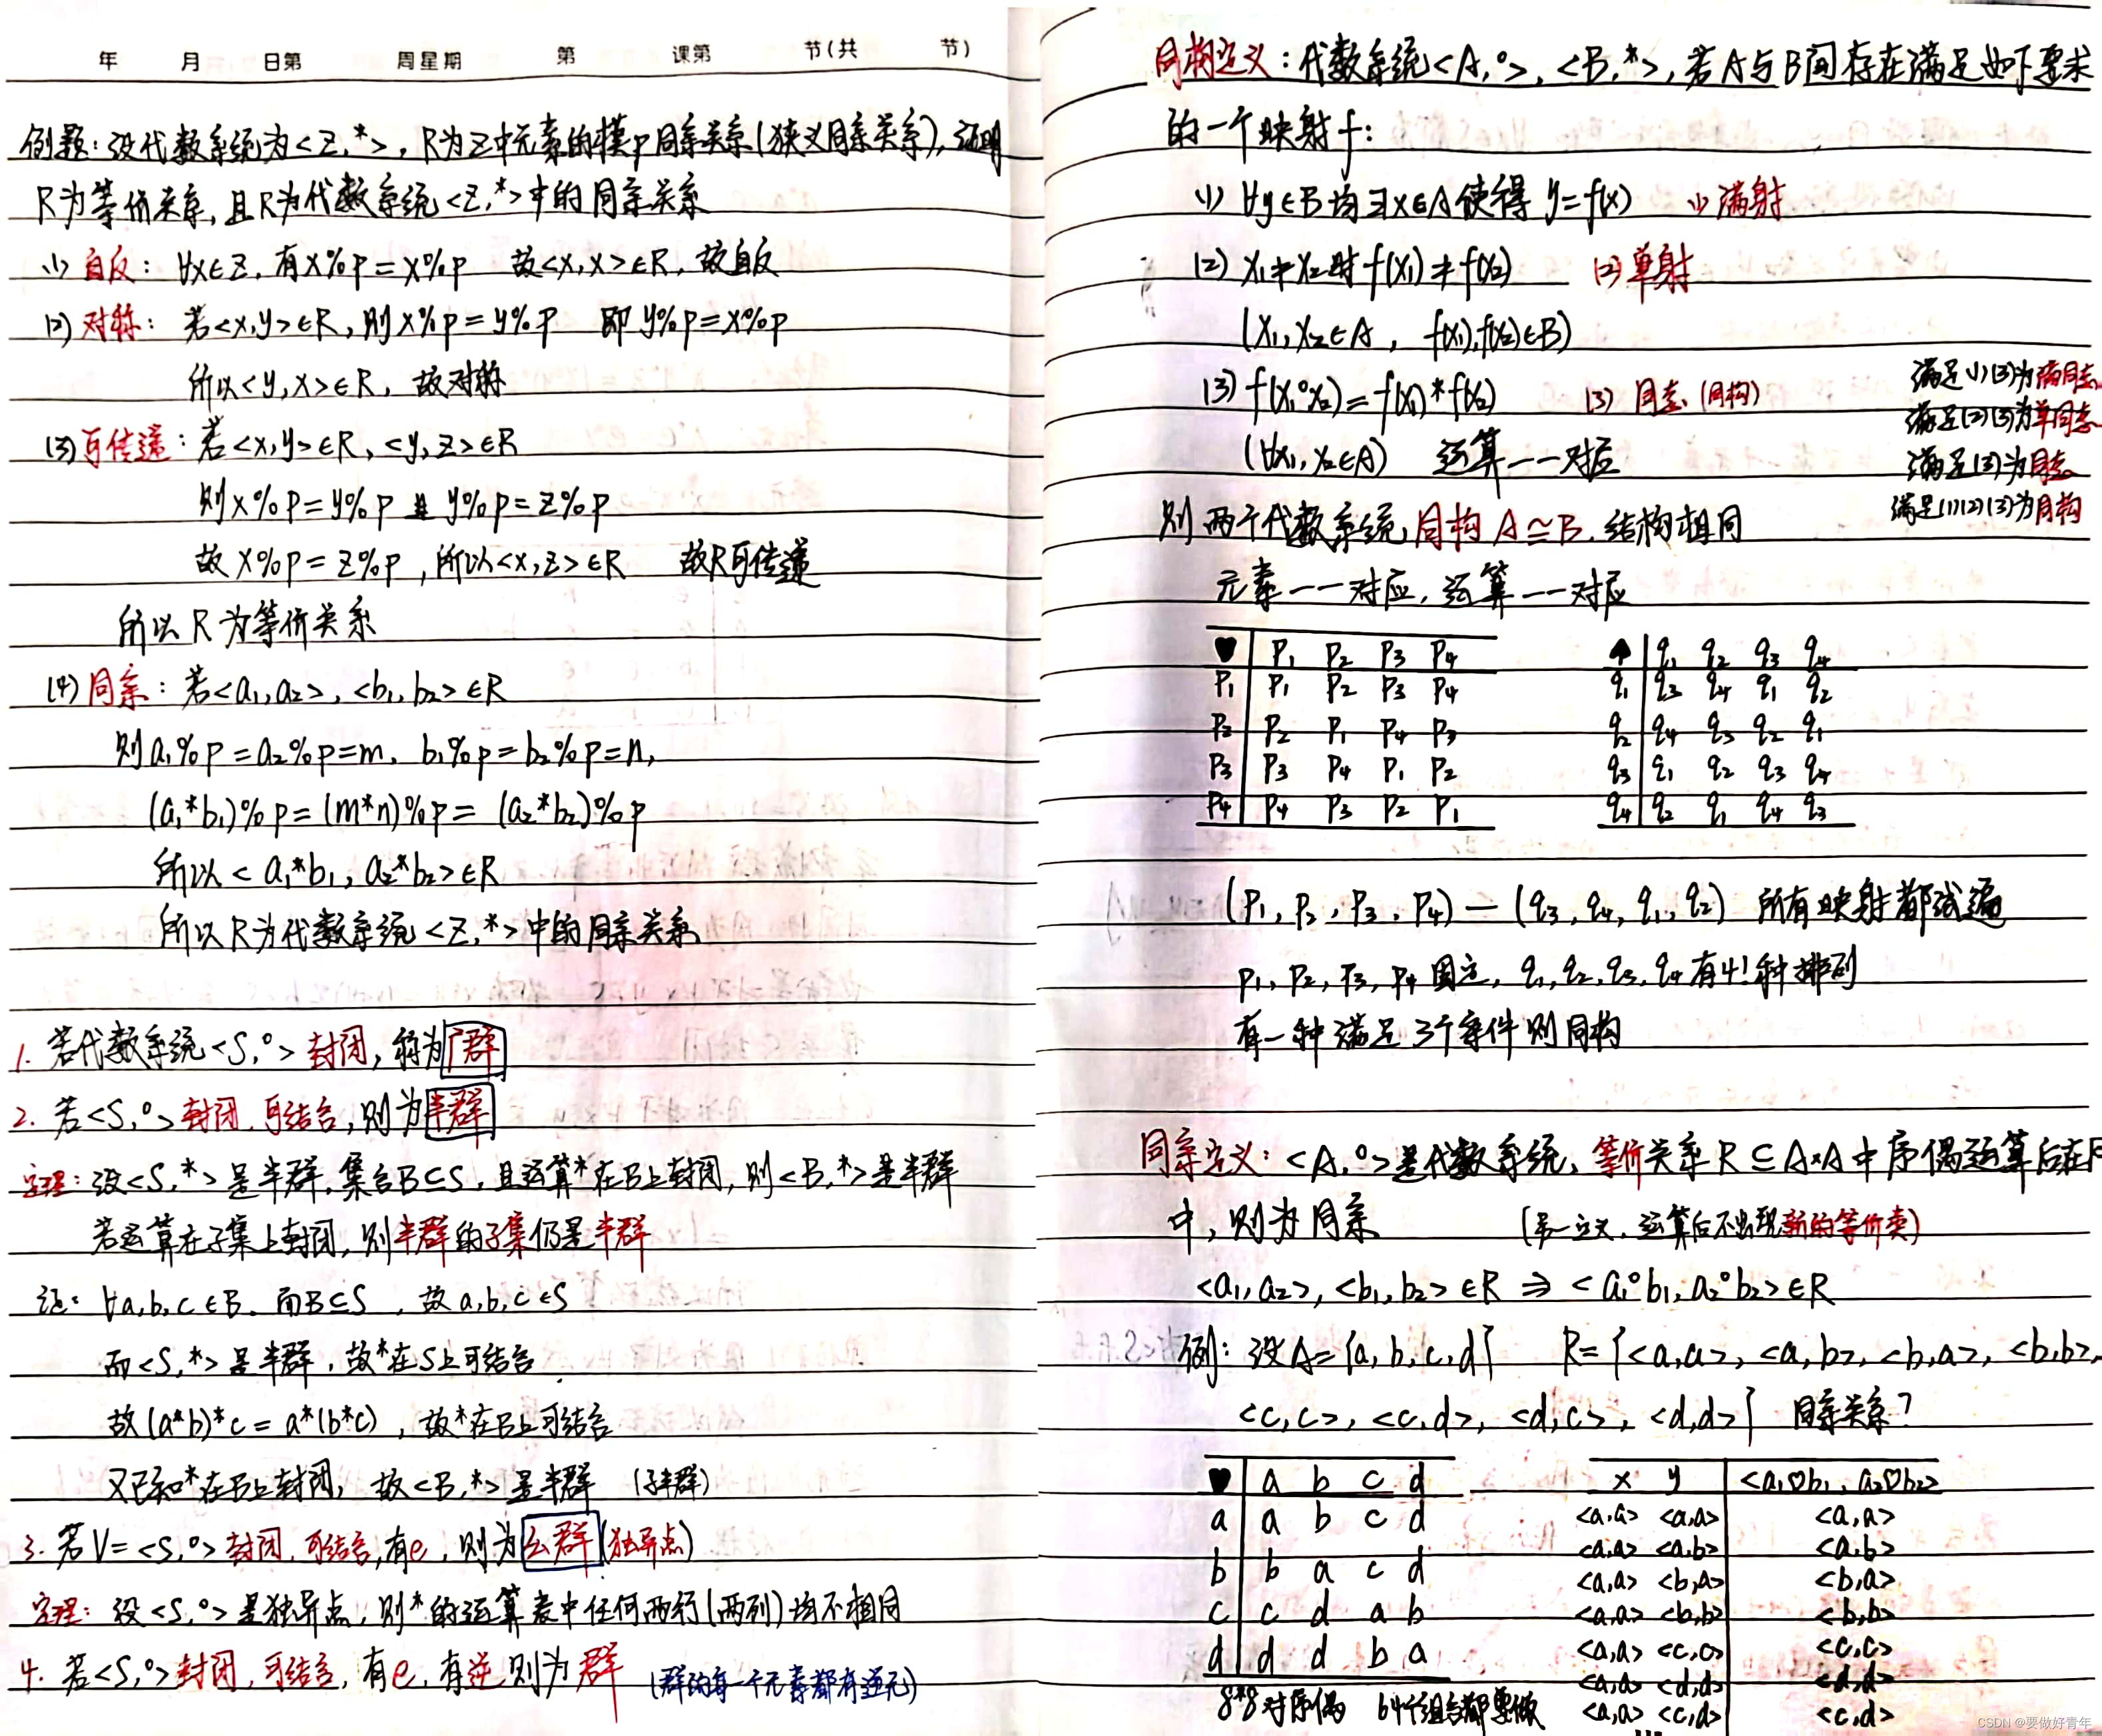 年 月 日第 周星期 第 课第 节(共 节)
例题:设代数系统为<Z,*>,R为Z中元素的模p同余关系(狭义同余关系),证明
R为等价关系,且R为代数系统<Z,*>中的同余关系
(1) 自反: ∀x∈Z,有x%p=x%p 故<x,x>∈R,故自反
(2) 对称: 若<x,y>∈R,则x%p=y%p 即y%p=x%p
所以<y,x>∈R,故对称
(3) 可传递: 若<x,y>∈R,<y,z>∈R
则x%p=y%p 且 y%p=z%p
故x%p=z%p,所以<x,z>∈R 故R可传递
所以R为等价关系
(4) 同余: 若<a₁,a₂>,<b₁,b₂>∈R
则a₁%p=a₂%p=m, b₁%p=b₂%p=n,
(a₁*b₁)%p=(m*n)%p=(a₂*b₂)%p
所以<a₁*b₁,a₂*b₂>∈R
所以R为代数系统<Z,*>中的同余关系
1. 若代数系统<S,°>封闭,称为广群
2. 若<S,°>封闭,可结合,则为半群
定理: 设<S,*>是半群,集合B⊆S,且运算*在B上封闭,则<B,*>是半群
若运算在子集上封闭,则半群的子集仍是半群
证: ∀a,b,c∈B,而B⊆S,故a,b,c∈S
而<S,*>是半群,故*在S上可结合
故(a*b)*c=a*(b*c),故*在B上可结合
又已知*在B上封闭,故<B,*>是半群 (子半群)
3. 若V=<S,°>封闭,可结合,有e,则为么群(独异点)
定理: 设<S,°>是独异点,则*的运算表中任何两行(两列)均不相同
4. 若<S,°>封闭,可结合,有e,有逆则为群 (群的每一个元素都有逆元)
同构定义: 代数系统<A,°>,<B,*>,若A与B间存在满足如下要求
的一个映射f:
(1) ∀y∈B均∃x∈A使得y=f(x) (1)满射
(2) x₁≠x₂时f(x₁)≠f(x₂) (2)单射
(x₁,x₂∈A, f(x₁),f(x₂)∈B)
(3) f(x₁°x₂)=f(x₁)*f(x₂) (3) 同态(同构)
(∀x₁,x₂∈A) 运算一一对应
满足(1)(3)为满同态
满足(2)(3)为单同态
满足(3)为同态
满足(1)(2)(3)为同构
则两个代数系统同构A≅B,结构相同
元素一一对应,运算一一对应
♥ P₁ P₂ P₃ P₄ ♠ q₁ q₂ q₃ q₄
P₁ P₁ P₂ P₃ P₄ q₁ q₃ q₄ q₁ q₂
P₂ P₂ P₁ P₄ P₃ q₂ q₄ q₃ q₂ q₁
P₃ P₃ P₄ P₁ P₂ q₃ q₁ q₂ q₃ q₄
P₄ P₄ P₃ P₂ P₁ q₄ q₂ q₁ q₄ q₃
(P₁,P₂,P₃,P₄)—(q₃,q₄,q₁,q₂) 所有映射都试遍
P₁,P₂,P₃,P₄固定,q₁,q₂,q₃,q₄有4!种排列
有一种满足3个条件则同构
同余定义: <A,°>是代数系统,等价关系R⊆A×A中序偶运算后在R
中,则为同余 (另一定义,运算后不出现新的等价类)
<a₁,a₂>,<b₁,b₂>∈R ⇒ <a₁°b₁,a₂°b₂>∈R
例: 设A={a,b,c,d} R={<a,a>,<a,b>,<b,a>,<b,b>,
<c,c>,<c,d>,<d,c>,<d,d>} 同余关系?
♥ a b c d x y <a₁♡b₁,a₂♡b₂>
a a b c d <a,a> <a,a> <a,a>
<a,a> <a,b> <a,b>
b b a c d <a,a> <b,a> <b,a>
c c d a b <a,a> <b,b> <b,b>
d d d b a <a,a> <c,c> <c,c>
<a,a> <d,d> <d,d>
8*8对序偶 64个组合都要做 <a,a> <c,d> <c,d>
CSDN @要做好青年